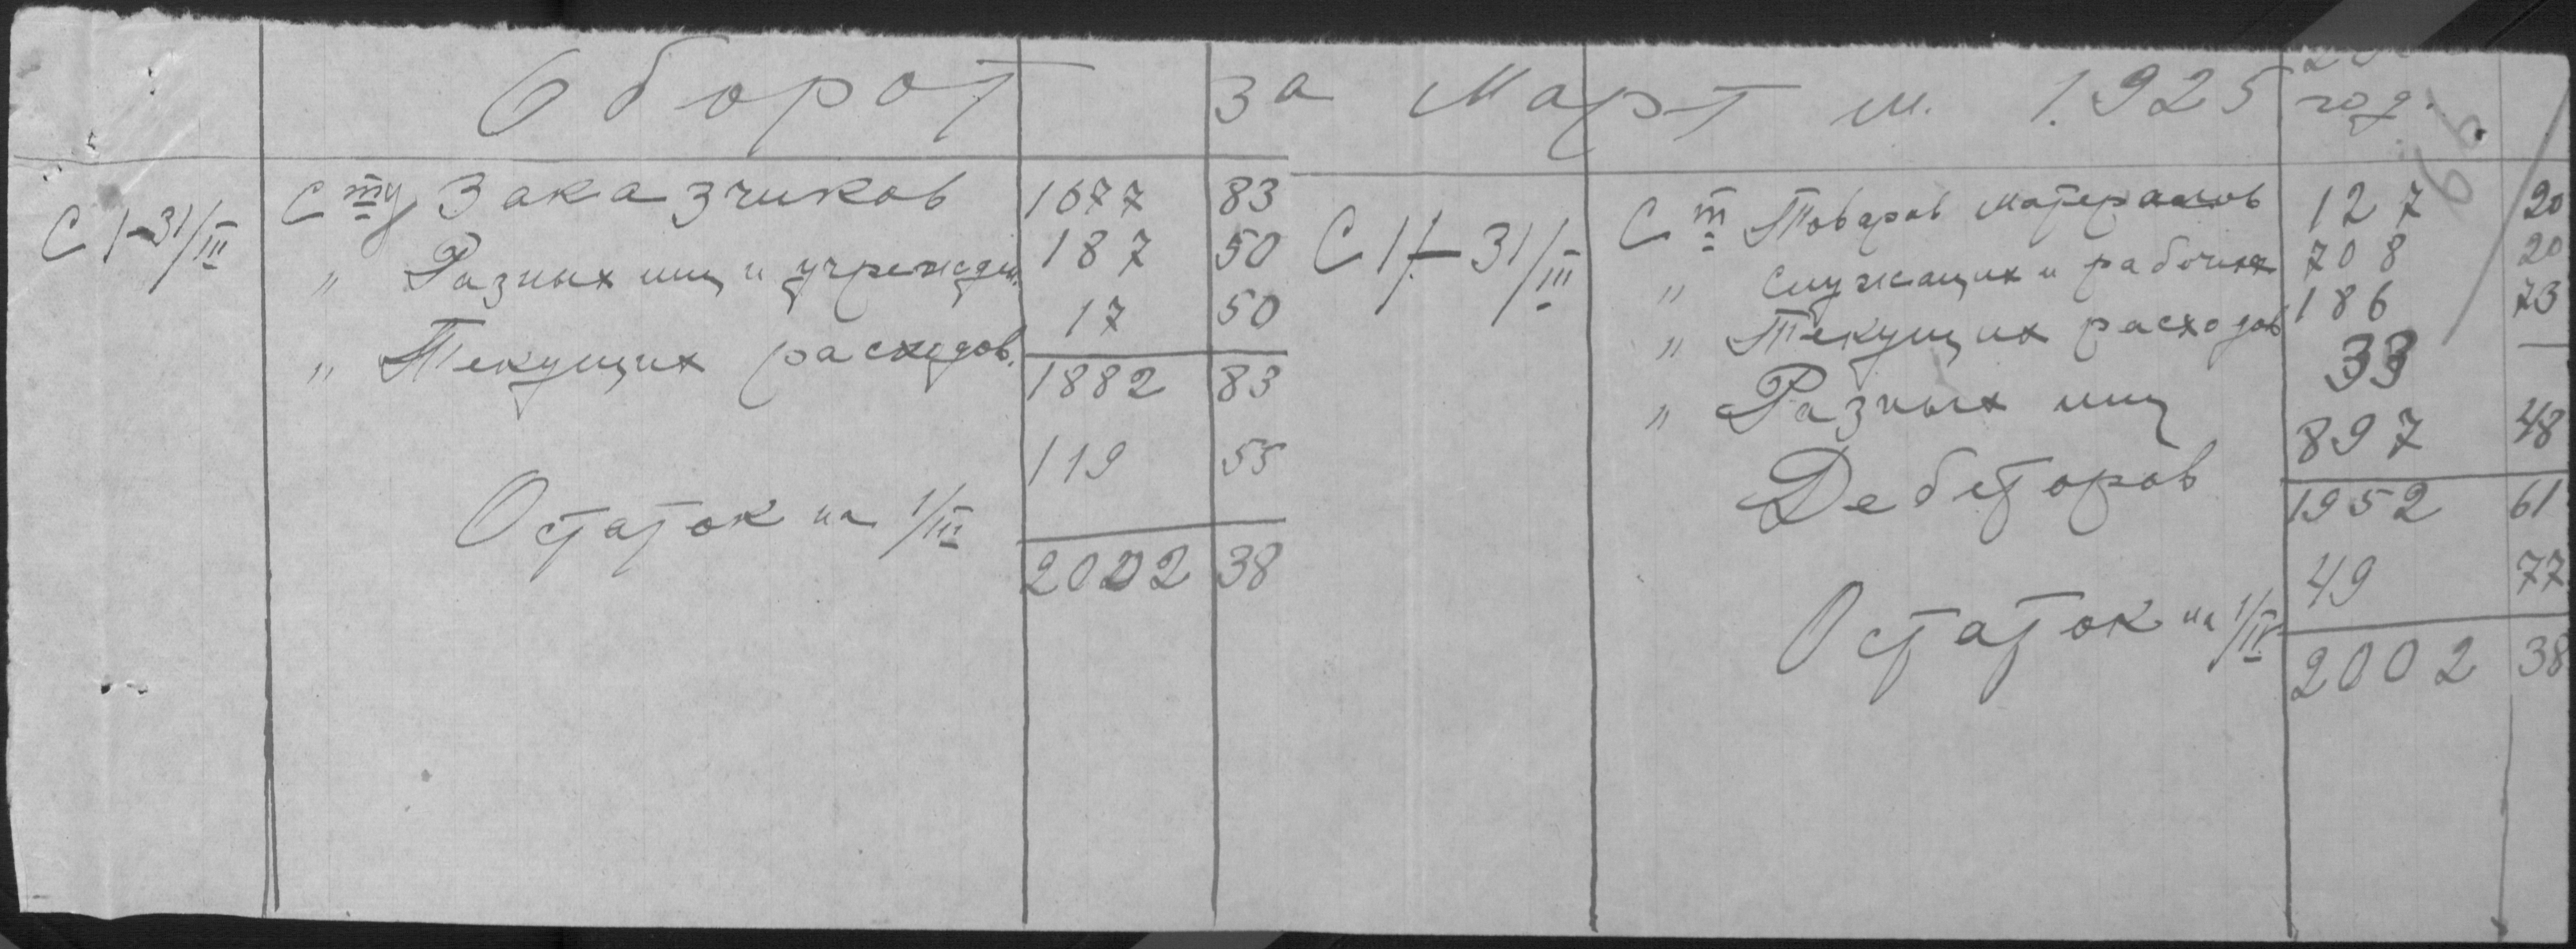 Оборот за Март м. 1925 год.
С 1-31/III Сту Заказчиков 1677 83
" Разных лиц и учрежден. 187 50
" Текущих расходов. 17 50
1882 83
119 55
Остаток на 1/III
2002 38
С 1/-31/III Ст Товаров материалов 127 20
" Служащих и рабочих 708 20
" Текущих расходов 186 73
" Разных лиц 33 —
Дебеторов 897 48
1952 61
Остаток на 1/IV 49 77
2002 38
66